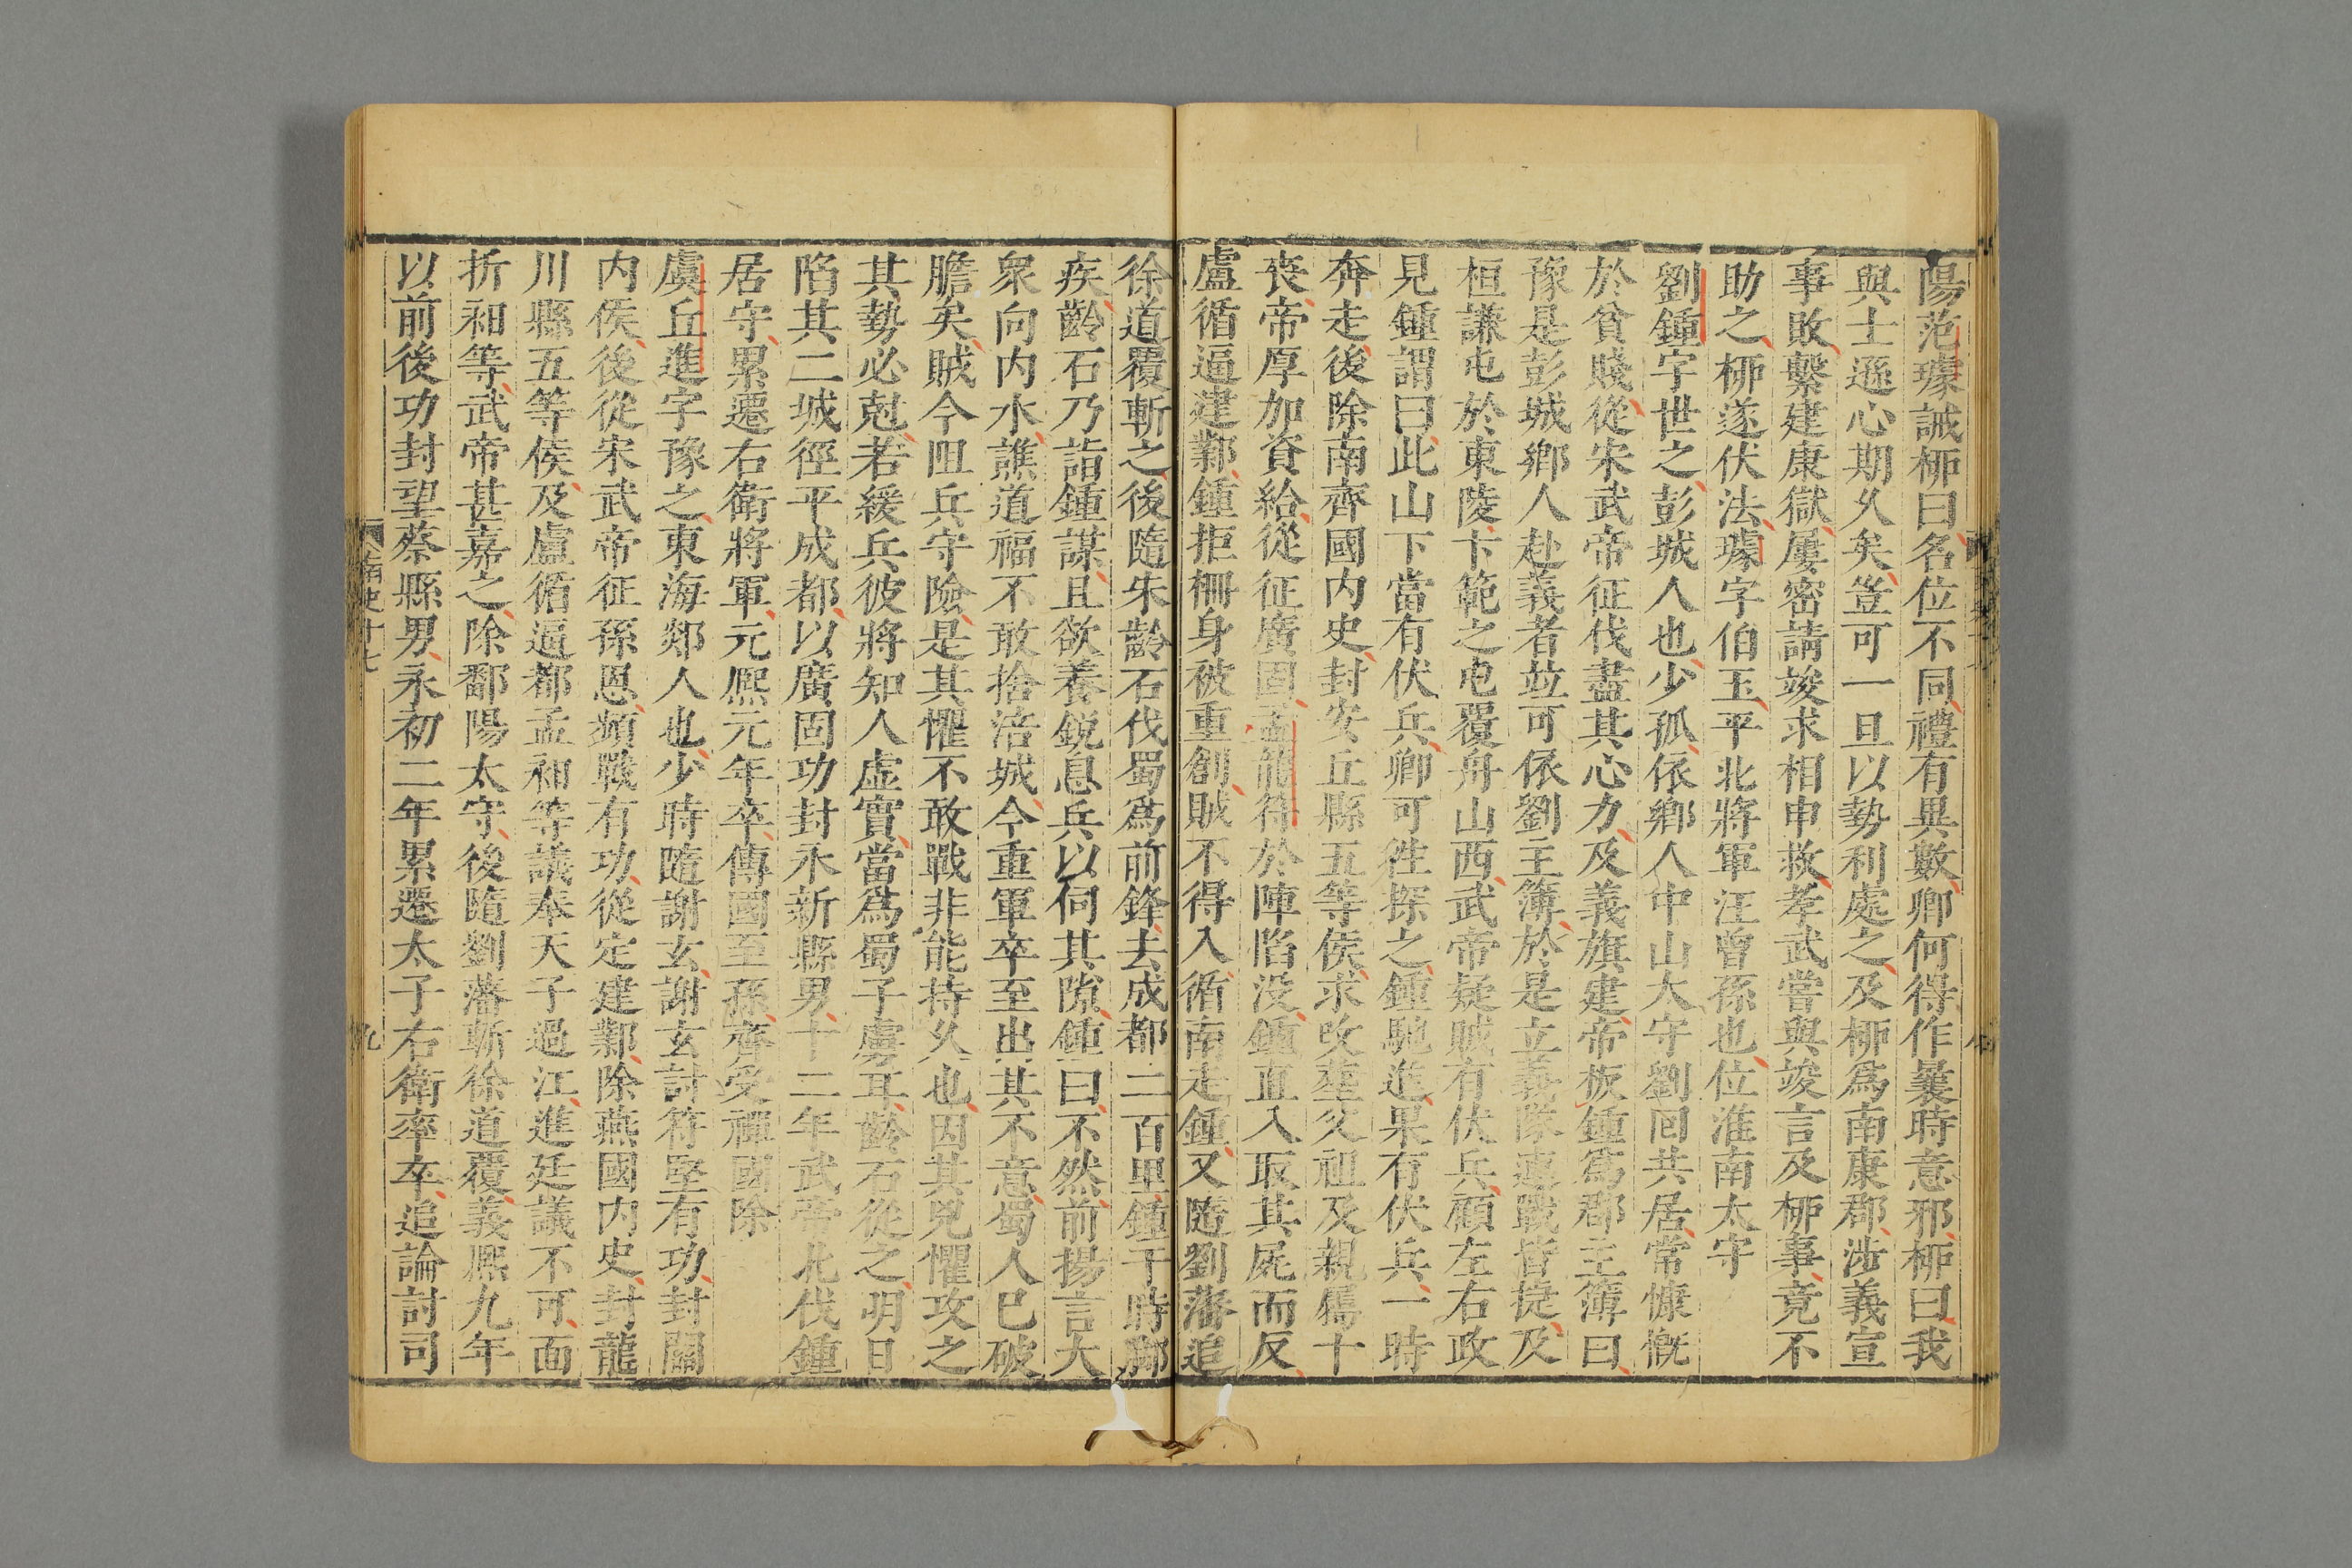 陽范璩誡桞曰名位不同禮有異數卿何得作曩時意邪桞曰我
與士遜心期久矣豈可一旦以勢利處之及桞爲南康郡涉義宣
事敗繫建康獄屢密請竣求相申救孝武嘗與竣言及桞事竟不
助之桞遂伏法璩字伯玉平北將軍汪曾孫也位淮南太守
劉鍾字世之彭城人也少孤依鄉人中山太守劉回共居常慷慨
於貧賤從宋武帝征伐盡其心力及義旗建帝板鍾爲郡主簿曰
豫是彭城鄉人赴義者並可依劉主簿於是立義隊連戰皆捷及
桓謙屯於東陵卞範之屯覆舟山西武帝疑賊有伏兵顧左右政
見鍾謂曰此山下當有伏兵卿可徃探之鍾馳進果有伏兵一時
奔走後除南齊國内史封安丘縣五等侯求改葬父祖及親屬十
喪帝厚加資給從征廣固孟龍符於陣陷没鍾直入取其屍而反
盧循逼建鄴鍾拒柵身被重創賊不得入循南走鍾又隨劉藩追
徐道覆斬之後隨朱齡石伐蜀爲前鋒去成都二百里鍾于時脚
疾齡石乃詣鍾謀且欲養銳息兵以伺其隙鍾曰不然前揚言大
衆向内水譙道福不敢捨涪城今重軍卒至出其不意蜀人已破
膽矣賊今阻兵守險是其懼不敢戰非能持久也因其兇懼攻之
其勢必尅若緩兵彼將知人虚實當爲蜀子虜耳齡石從之明日
陷其二城徑平成都以廣固功封永新縣男十二年武帝北伐鍾
居守累遷右衛將軍元熙元年卒傳國至孫齊受禪國除
虞丘進字豫之東海郯人也少時隨謝玄謝玄討符堅有功封關
内侯後從宋武帝征孫恩頻戰有功從定建鄴除燕國内史封龍
川縣五等侯及盧循逼都孟昶等議奉天子過江進廷議不可面
折昶等武帝甚嘉之除鄱陽太守後隨劉藩斬徐道覆義熙九年
以前後功封望蔡縣男永初二年累遷太子右衛率卒追論討司
南史十七
九